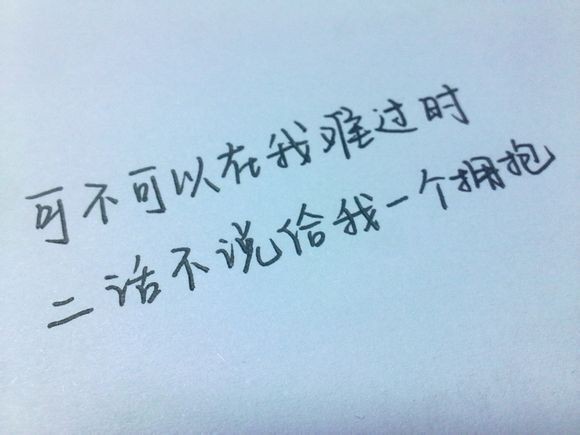 可不可以在我难过时
二话不说给我一个拥抱